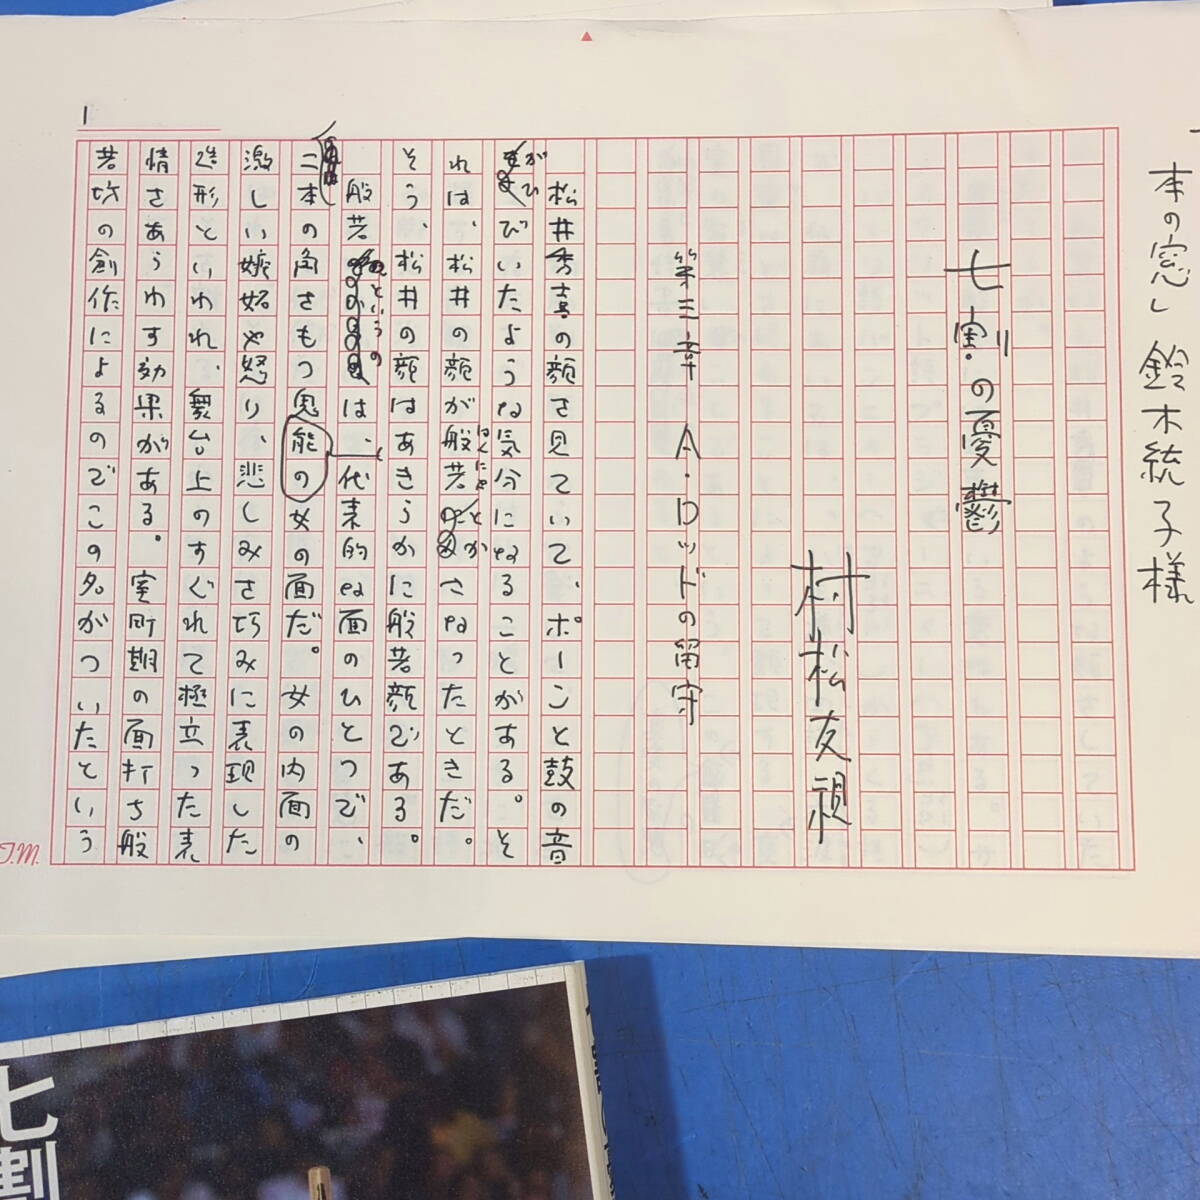 本の窓し 鈴木統子様
七割の憂鬱
村松友視
第三章 A・ロッドの留守
松井秀喜の顔を見ていて、ポーンと鼓の音
がひびいたような気分になることがある。そ
れは、松井の顔が般若とかさなったときだ。
はんにゃ
そう、松井の顔はあきらかに般若顔である。
般若というのは、代表的な面のひとつで、
二本の角をもつ鬼能の女の面だ。女の内面の
激しい嫉妬や怒り、悲しみを巧みに表現した
造形といわれ、舞台上のすぐれて極立った表
情をあらわす効果がある。室町期の面打ち般
若坊の創作によるのでこの名がついたという
1
T.M.
七割